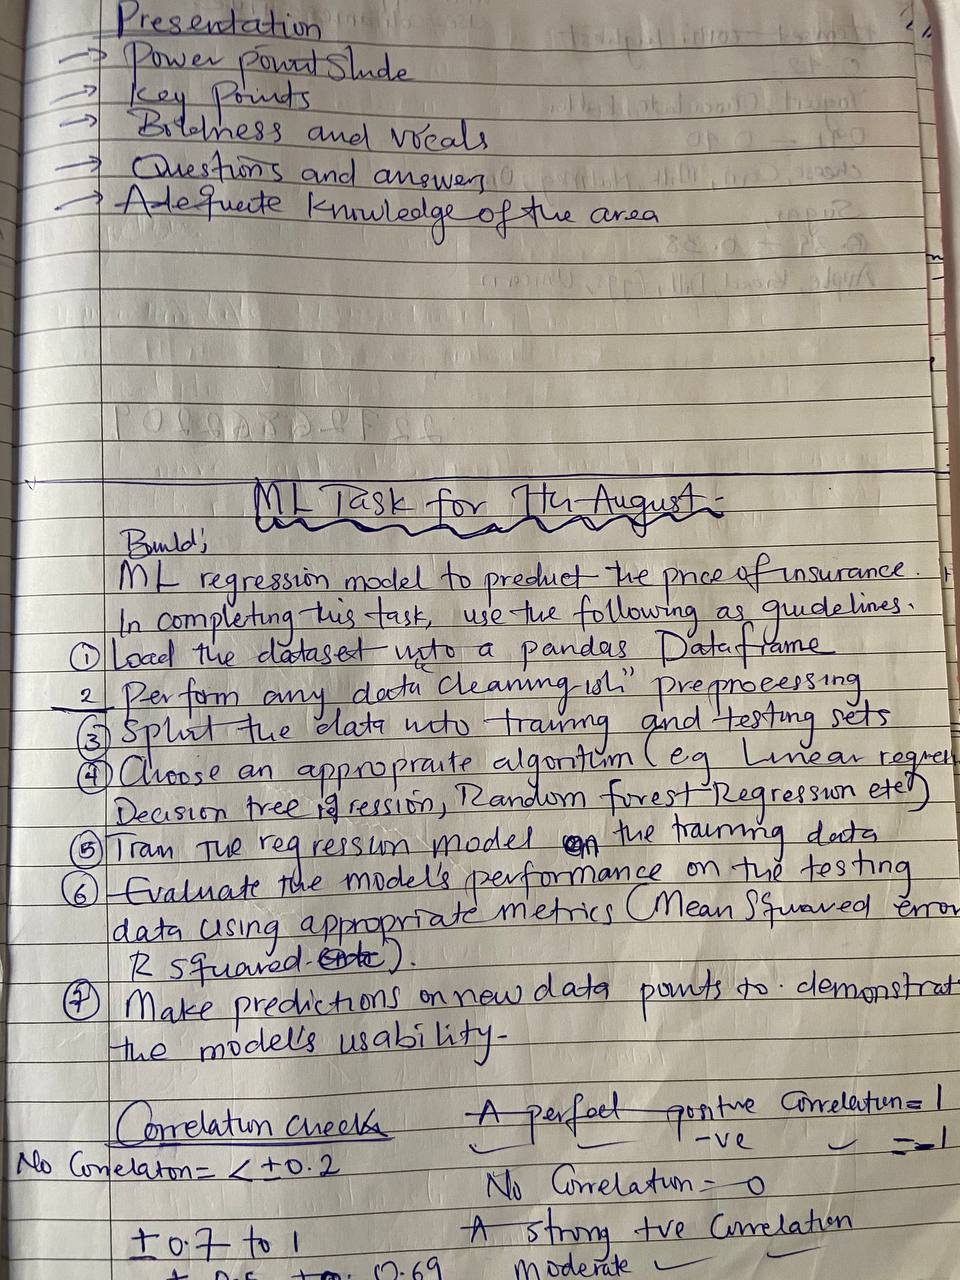 Presentation
→ Power point Slide
→ Key Points
→ Boldness and vocals
→ Questions and answers
→ Adequate knowledge of the area
ML Task for 7th August:-
Build;
ML regression model to predict the price of insurance.
In completing this task, use the following as guidelines.
① Load the dataset into a pandas Dataframe
2 Perform any data "cleaning ish" preprocessing
③ Split the data into training and testing sets
④ Choose an appropraite algorithm (eg Linear regren
Decision tree regression, Random forest Regression etc)
⑤ Train the regression model on the training data
⑥ Evaluate the model's performance on the testing
data using appropriate metrics (Mean Squared error
R squared ).
⑦ Make predictions on new data points to demonstrat
the model's usability-
Correlation checks
A perfect positive Correlation = 1
-ve = -1
No Correlation = < ±0.2
No Correlation = 0
A strong +ve Correlation
±0.7 to 1
moderate
0.69